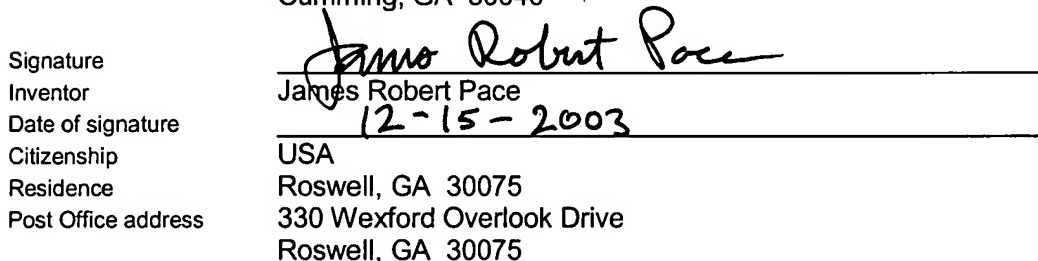 Cumming, GA 30040
Signature James Robert Pace
Inventor James Robert Pace
Date of signature 12-15-2003
Citizenship USA
Residence Roswell, GA 30075
Post Office address 330 Wexford Overlook Drive
Roswell, GA 30075